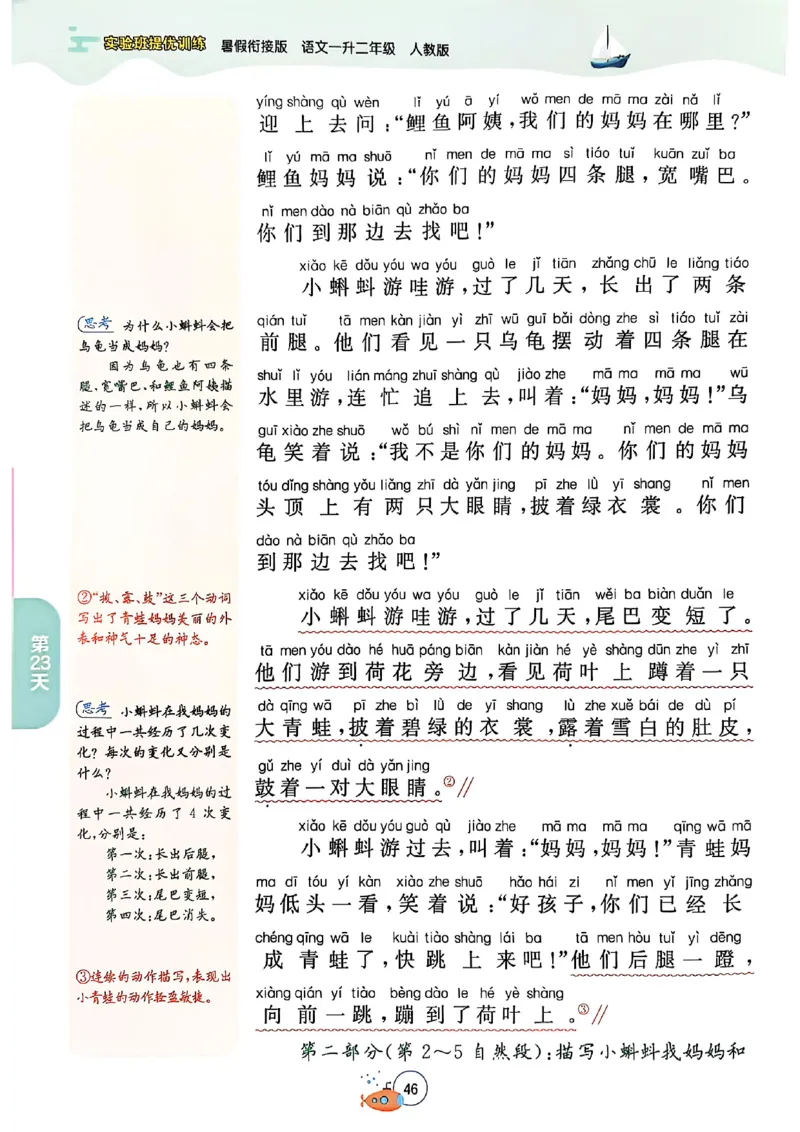 实验班提优训练 暑假衔接版 语文一升二年级 人教版
yíng shàng qù wèn lǐ yú ā yí wǒ men de mā ma zài nǎ lǐ
迎上去问:“鲤鱼阿姨,我们的妈妈在哪里?”
lǐ yú mā ma shuō nǐ men de mā ma sì tiáo tuǐ kuān zuǐ ba
鲤鱼妈妈说:“你们的妈妈四条腿,宽嘴巴。
nǐ men dào nà biān qù zhǎo ba
你们到那边去找吧!”
xiǎo kē dǒu yóu wa yóu guò le jǐ tiān zhǎng chū le liǎng tiáo
小蝌蚪游哇游,过了几天,长出了两条
qián tuǐ tā men kàn jiàn yì zhī wū guī bǎi dòng zhe sì tiáo tuǐ zài
前腿。他们看见一只乌龟摆动着四条腿在
shuǐ lǐ yóu lián máng zhuī shàng qù jiào zhe mā ma mā ma wū
水里游,连忙追上去,叫着:“妈妈,妈妈!”乌
guī xiào zhe shuō wǒ bú shì nǐ men de mā ma nǐ men de mā ma
龟笑着说:“我不是你们的妈妈。你们的妈妈
tóu dǐng shàng yǒu liǎng zhī dà yǎn jing pī zhe lǜ yī shang nǐ men
头顶上有两只大眼睛,披着绿衣裳。你们
dào nà biān qù zhǎo ba
到那边去找吧!”
xiǎo kē dǒu yóu wa yóu guò le jǐ tiān wěi ba biàn duǎn le
小蝌蚪游哇游,过了几天,尾巴变短了。
tā men yóu dào hé huā páng biān kàn jiàn hé yè shàng dūn zhe yì zhī
他们游到荷花旁边,看见荷叶上蹲着一只
dà qīng wā pī zhe bì lǜ de yī shang lù zhe xuě bái de dù pí
大青蛙,披着碧绿的衣裳,露着雪白的肚皮,
gǔ zhe yí duì dà yǎn jing
鼓着一对大眼睛。②//
xiǎo kē dǒu yóu guò qù jiào zhe mā ma mā ma qīng wā mā
小蝌蚪游过去,叫着:“妈妈,妈妈!”青蛙妈
ma dī tóu yí kàn xiào zhe shuō hǎo hái zi nǐ men yǐ jīng zhǎng
妈低头一看,笑着说:“好孩子,你们已经长
chéng qīng wā le kuài tiào shàng lái ba tā men hòu tuǐ yì dēng
成青蛙了,快跳上来吧!”他们后腿一蹬,
xiàng qián yí tiào bèng dào le hé yè shàng
向前一跳,蹦到了荷叶上。③//
第二部分(第2~5自然段):描写小蝌蚪找妈妈和
思考 为什么小蝌蚪会把
乌龟当成妈妈?
因为乌龟也有四条
腿、宽嘴巴、和鲤鱼阿姨描
述的一样,所以小蝌蚪会
把乌龟当成自己的妈妈。
②“披、露、鼓”这三个动词
写出了青蛙妈妈美丽的外
表和神气十足的神态。
思考 小蝌蚪在找妈妈的
过程中一共经历了几次变
化?每次的变化又分别是
什么?
小蝌蚪在找妈妈的过
程中一共经历了4次变
化,分别是:
第一次:长出后腿,
第二次:长出前腿,
第三次:尾巴变短,
第四次:尾巴消失。
③连续的动作描写,表现出
小青蛙的动作轻盈敏捷。
第
23
天
46